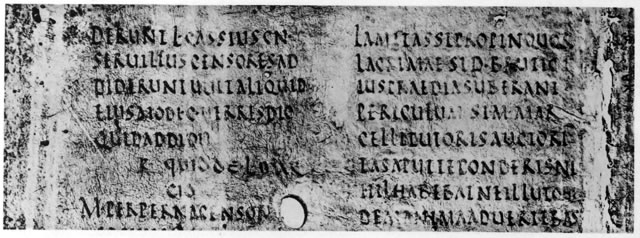 DERUNT L CASSIUS CN
SERUILIUS CENSORES AD
DIDERUNT UULT ALIQUID
EIUSMODI UERRES DIC
QUID ADDIDIT
R qui de L Mar
CIO
M PERPERNA CENSOR
AETAS SI PROPINQUOR
LACRIMAE SI D BRUTI CU
IUS PRAEDIA SUBERANT
PERICULUM SI M MAR
CELLI TUTORIS AUCTORI
TAS APUT TE PONDERIS NI
HIL HABEBAT NE ILLUT QUI
DEM ANIMADUERTEBAS